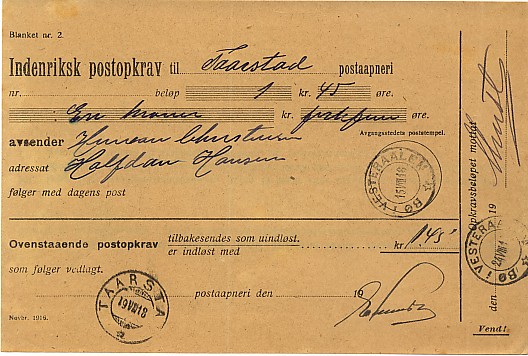 Blanket nr. 2.
Indenriksk postopkrav til Taarstad postaapneri
nr. beløp 1 kr. 45 øre.
En krone kr. førtifem øre.
Avgangsstedets poststempel.
avsender
adressat Halfdan Hansen
følger med dagens post
BØ I VESTERAALEN
15 VII 18
Ovenstaaende postopkrav tilbakesendes som uindløst.
er indløst med kr. 1.45
som følger vedlagt.
postaapneri den 19
TAARSTAD
19 VII 18
Novbr. 1916.
Opkravsbeløpet mottat
den 19
BØ I VESTERAALEN
Vend!